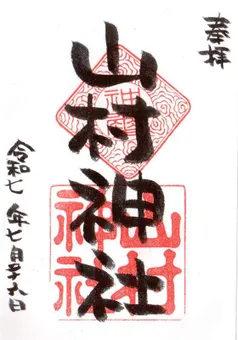 奉拝
山村神社
令和七年七月十九日
山村
神社